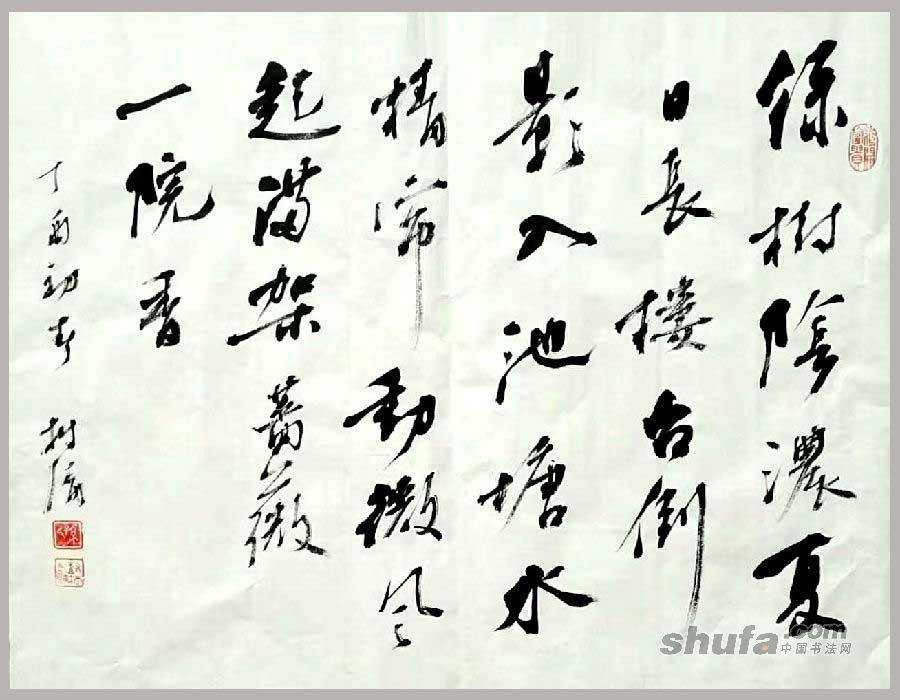 綠樹陰濃夏
日長樓台倒
影入池塘水
精帘動微風
起滿架薔薇
一院香
丁酉初春
shufa.com
中国书法网